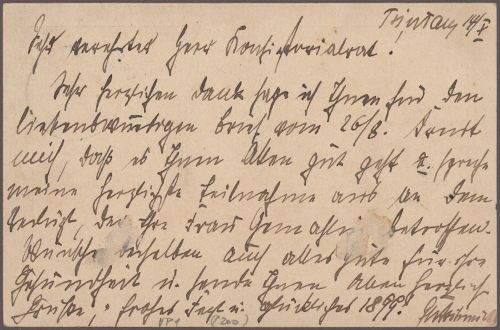 Tsintau, 14/X
Sehr verehrter Herr Konsistorialrat.
Sehr herzlichen Dank sage ich Ihnen für den
liebenswürdigen Brief vom 26/8. Freut
mich, daß es Ihnen Allen gut geht u. spreche
meine herzlichste Teilnahme aus an dem
Verlust, der Ihre Frau Gemahlin betroffen.
Wünsche derselben auch alles Gute für ihre
Gesundheit u. sende Ihnen Allen herzlich
Grüße, "frohes Fest u. glückliches 1899".